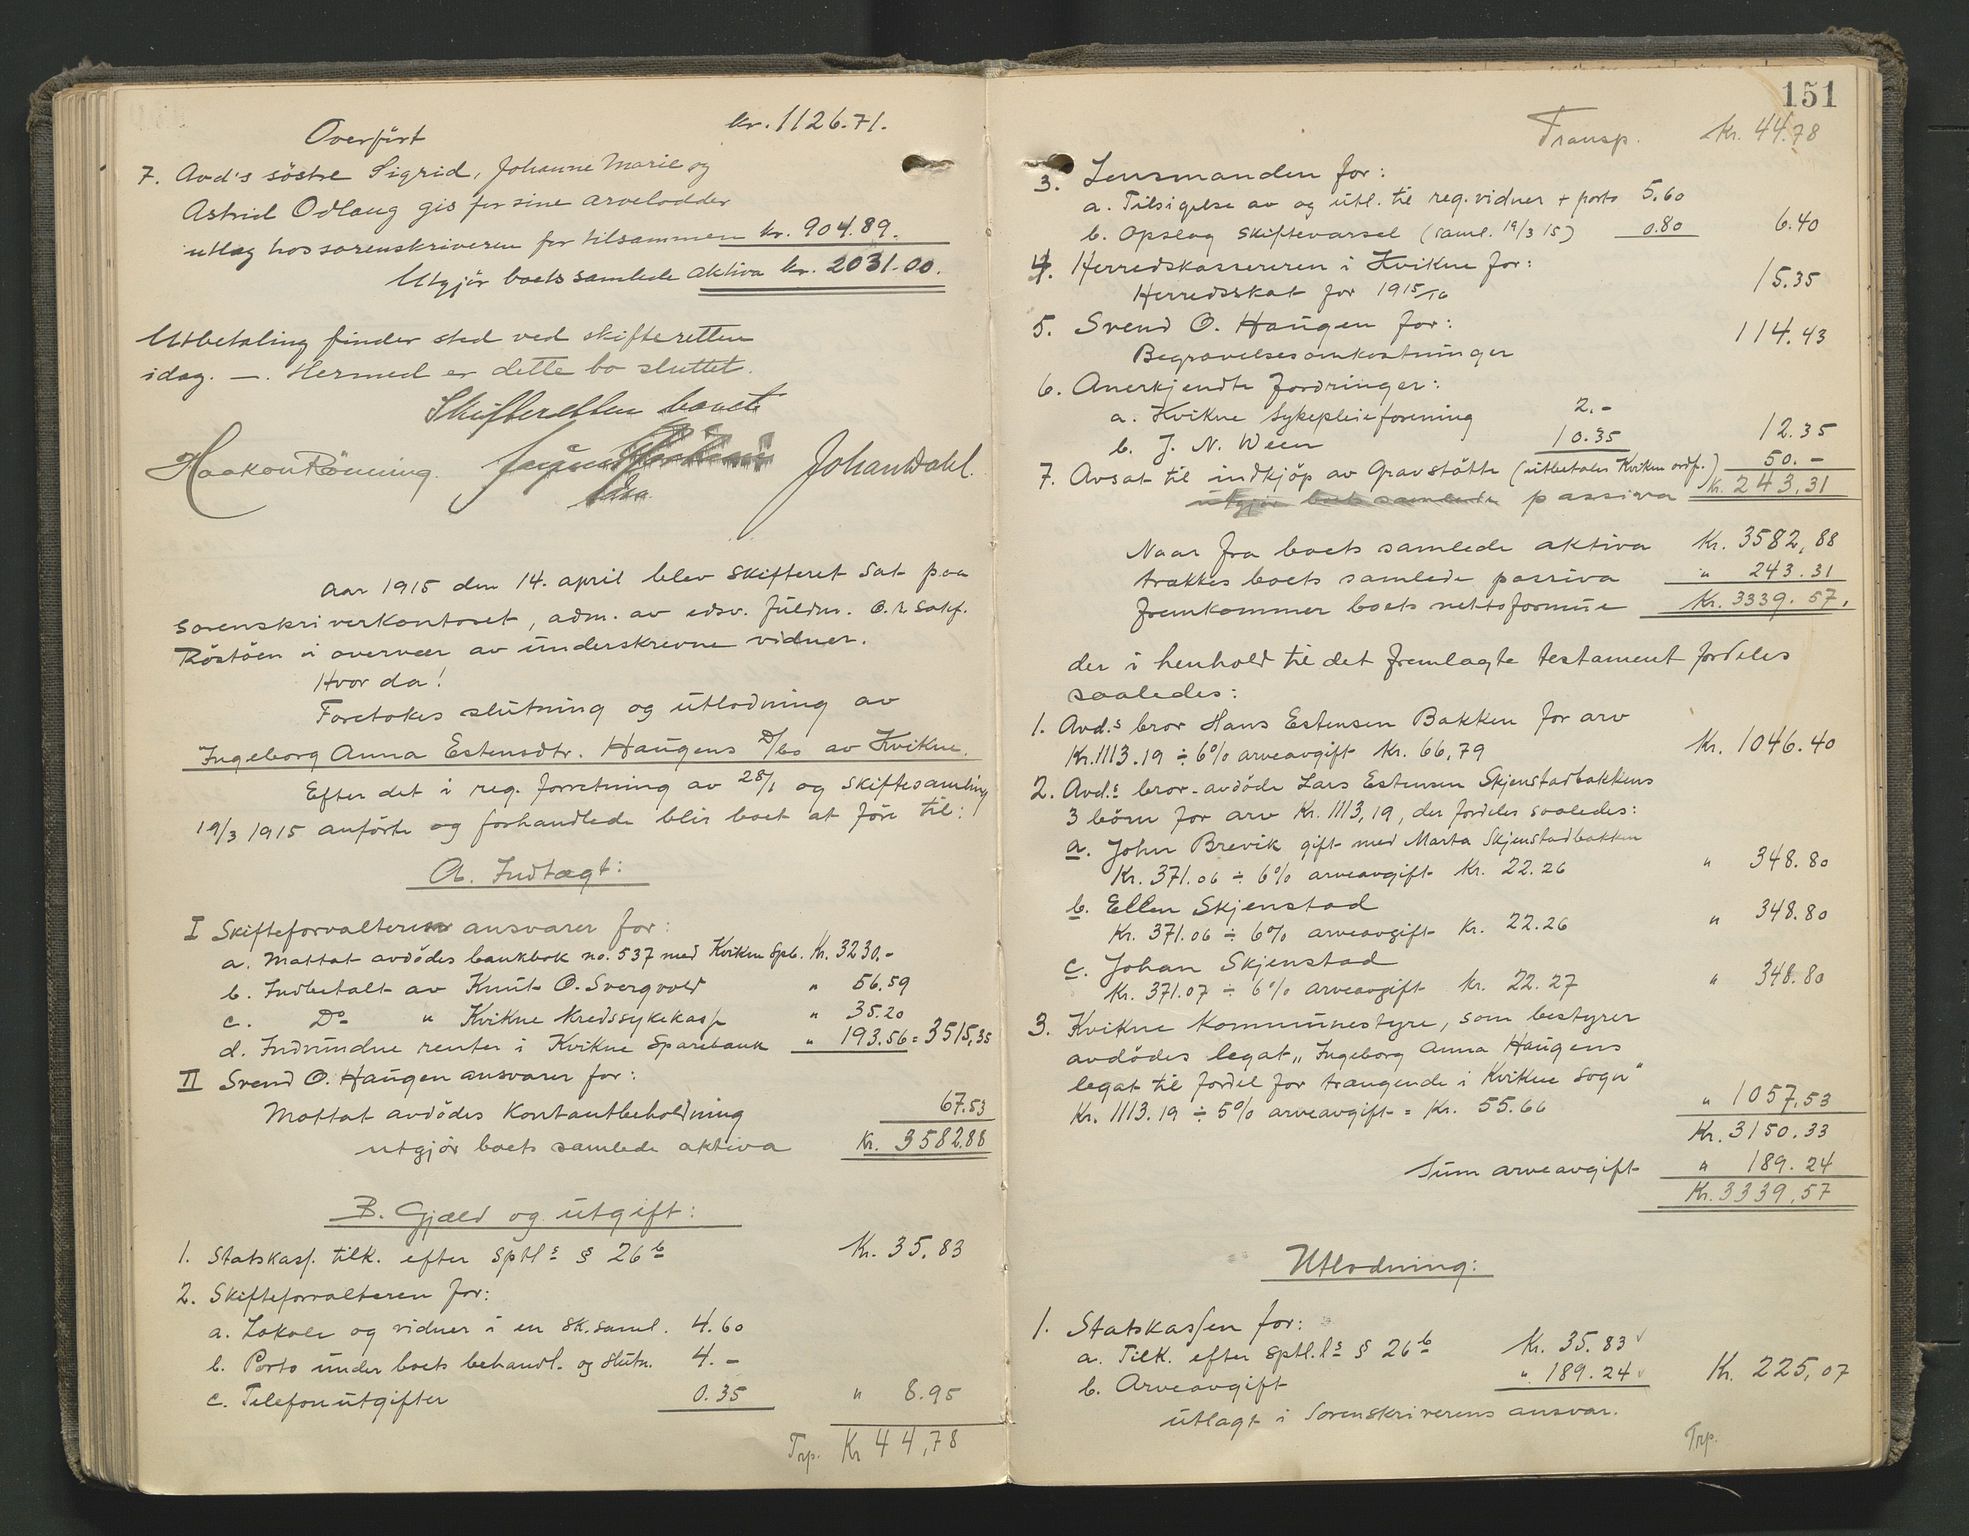 Overført kr. 1126.71.
7. Avd's søstre Sigrid, Johanne Marie og
Astrid Odlaug gis for sine arvelodder
utlæg hos sorenskriveren for tilsammen kr. 904.89.
Utgjør boets samlede aktiva kr. 2031.00.
Utbetaling finder sted ved skifteretten
idag. —. Hermed er dette bo sluttet.
Skifteretten hævet
Haakon Rönning. Johan Dahl.
Aar 1915 den 14. april blev skifteret sat paa
sorenskriverkontoret, adm. av edsv. fuldm. O. r. sakf.
Röstöen i overvær av underskrevne vidner.
Hvor da!
Foretokes slutning og utlodning av
Ingeborg Anna Estensdtr. Haugens D/bo av Kvikne.
Efter det i reg. forretning av 28/1 og skiftesamling
19/3 1915 anførte og forhandlede blir boet at føre til:
A. Indtægt:
I Skifteforvalteren ansvarer for:
a. Mottat avdödes bankbok no. 537 med Kvikne Spb. Kr. 3230.-
b. Indbetalt av Knut O. Svergvold " 56.59
c. Do " Kvikne kredssykekasse " 35.20
d. Indvundne renter i Kvikne Sparebank " 193.56 = 3515,35
II Svend O. Haugen ansvarer for:
Mottat avdödes Kontantbeholdning 67.53
utgjör boets samlede aktiva Kr. 3582.88
B. Gjæld og utgift:
1. Statskass. tilk. efter sptl s § 26 b Kr. 35.83
2. Skifteforvalteren for:
a. Lokale og vidner i en sk.saml. 4.60
b. Porto under boets behandl. og slutn. 4.-
c. Telefonutgifter 0.35 " 8.95
Trp. Kr 44,78
151
Transp. Kr. 44.78
3. Lensmanden for:
a. Tilsigelse av og utl. til reg. vidner + porto 5.60
b. Opslag skiftevarsel (saml. 19/3 15) 0.80 6.40
4. Herredskassereren i Kvikne for:
Herredsskat for 1915/16 15.35
5. Svend O. Haugen for:
Begravelsesomkostninger 114.43
6. Anerkjendte fordringer:
a. Kvikne sykepleieforening 2.-
b. J. N. Ween 10.35 12.35
7. Avsat til indkjöp av Gravstötte (utbetales Kvikne ordf.) 50.-
utgjør boets samlede passiva Kr. 243,31
Naar fra boets samlede aktiva Kr. 3582,88
trækkes boets samlede passiva " 243.31
fremkommer boets nettoformue Kr. 3339.57,
der i henhold til det fremlagte testament fordeles
saaledes:
1. Avd.s bror Hans Estensen Bakken for arv
Kr. 1113.19 ÷ 6% arveavgift Kr. 66,79 Kr. 1046.40
2. Avd.s bror - avdöde Lars Estensen Skjenstadbakkens
3 börn for arv Kr. 1113,19, der fordeles saaledes:
a. John Brevik gift med Marta Skjenstadbakken
Kr. 371.06 ÷ 6% arveavgift Kr. 22.26 " 348.80
b. Ellen Skjenstad
Kr. 371.06 ÷ 6% arveavgift Kr. 22.26 " 348.80
c. Johan Skjenstad
Kr. 371.07 ÷ 6% arveavgift Kr. 22.27 " 348.80
3. Kvikne kommunestyre, som bestyrer
avdödes legat „Ingeborg Anna Haugens
legat til fordel for trængende i Kvikne sogn"
Kr. 1113.19 ÷ 5% arveavgift = Kr. 55.66 " 1057,53
Kr. 3150.33
Sum arveavgift " 189.24
Kr. 3339,57
Utlodning:
1. Statskassen for:
a. Tilk. efter sptl.l s § 26 b Kr. 35.83
b. Arveavgift " 189.24 Kr. 225,07
utlagt i Sorenskriverens ansvar.
Trp.